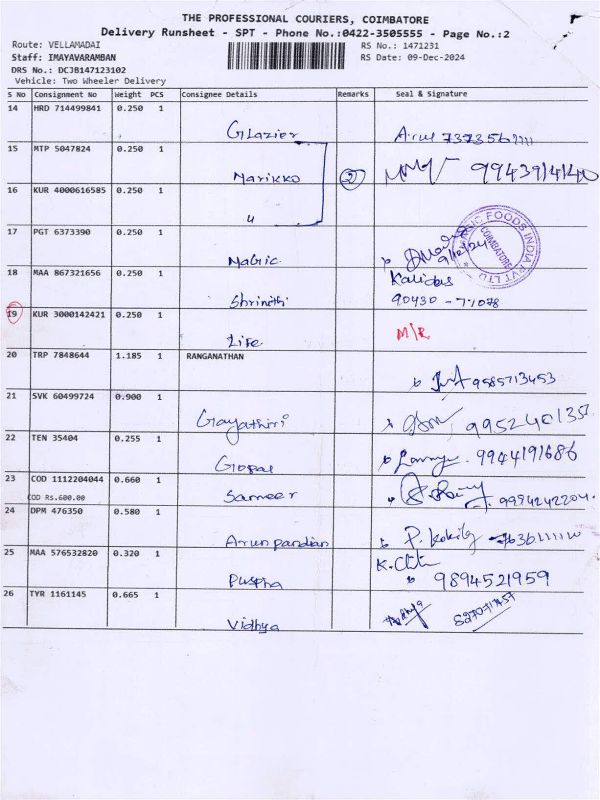 THE PROFESSIONAL COURIERS, COIMBATORE
Delivery Runsheet - SPT - Phone No.:0422-3505555 - Page No.:2
Route: VELLAMADAI RS No.: 1471231
Staff: IMAYAVARAMBAN RS Date: 09-Dec-2024
DRS No.: DCJB147123102
Vehicle: Two Wheeler Delivery
S No Consignment No Weight PCS Consignee Details Remarks Seal & Signature
14 HRD 714499841 0.250 1
Glazier
15 MTP 5047824 0.250 1
Marikko 2 9943914140
16 KUR 4000616585 0.250 1
"
17 PGT 6373390 0.250 1
Matric 9/12/24
FOODS INDIA PVT LTD
COIMBATORE
18 MAA 867321656 0.250 1 Kalidas
Shrinithi 90430 - 71078
19 KUR 3000142421 0.250 1
Life M/R
20 TRP 7848644 1.185 1 RANGANATHAN
9585713453
21 SVK 60499724 0.900 1
Gayathiri
22 TEN 35404 0.255 1
Gopal 9944191686
23 COD 1112204044 0.660 1
COD Rs.600.00 Sameer 9994242204.
24 DPM 476350 0.580 1
Arunpandian
25 MAA 576532820 0.320 1
Puspha 9894521959
26 TYR 1161145 0.665 1
Vidhya